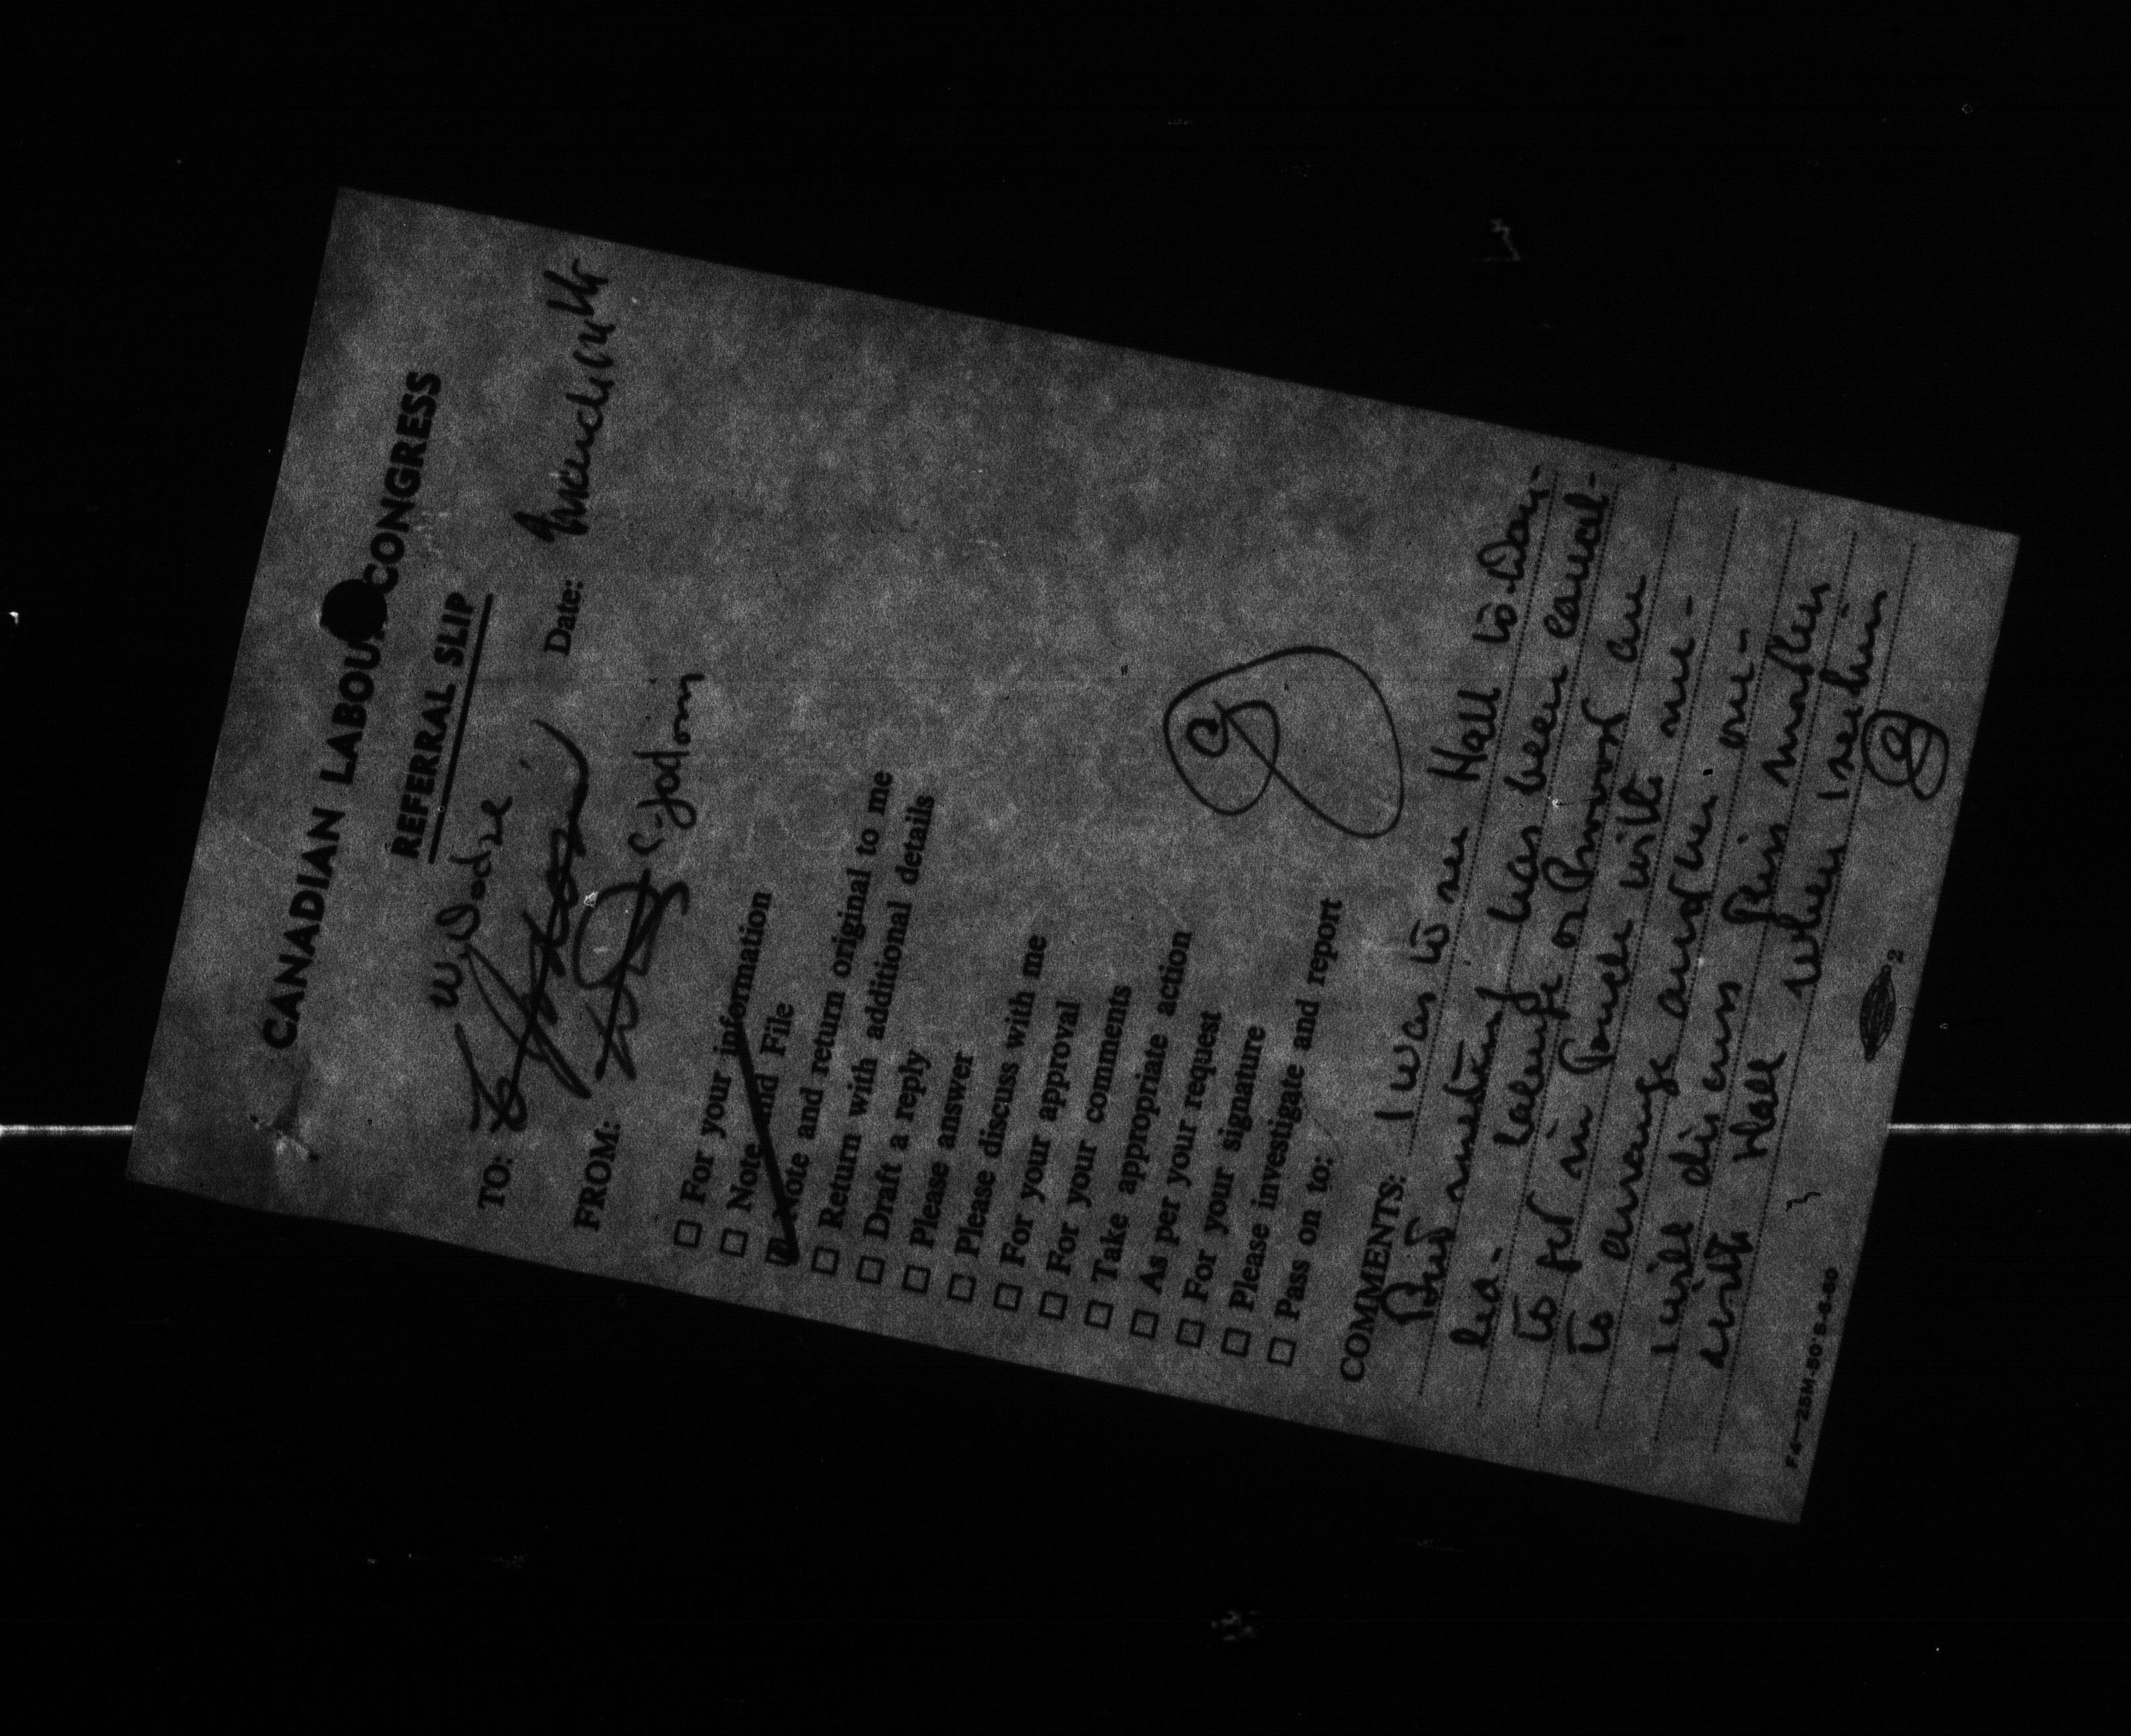 CANADIAN LABOUR CONGRESS
REFERRAL SLIP
W. Dodge
TO:
Date: March
FROM: C. Jodoin
☐ For your information
☐ Note and File
☐ Note and return original to me
☐ Return with additional details
☐ Draft a reply
☐ Please answer
☐ Please discuss with me
☐ For your approval
☐ For your comments
☐ Take appropriate action
☐ As per your request
☐ For your signature
☐ Please investigate and report
☐ Pass on to:
COMMENTS: I was to see Hall to-Day-
But meeting has been cancel-
led- Lalonge or Pinsonnault are
to get in touch with me-
to arrange another one-
will discuss this matter
with Hall when I see him
2
F 4—25M-50's-5-60